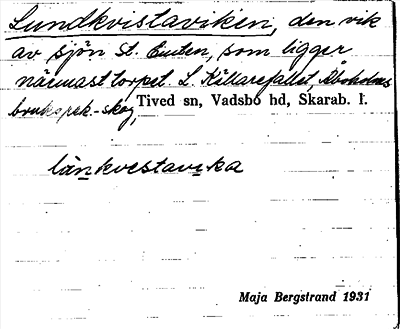 Lundkvistaviken, den vik
av sjön St. Emten, som ligger
närmast torpet L. Källarefallet, Åboholms
bruks rek.-skog,
Tived sn, Vadsbo hd, Skarab. l.
länkvestavika
Maja Bergstrand 1931